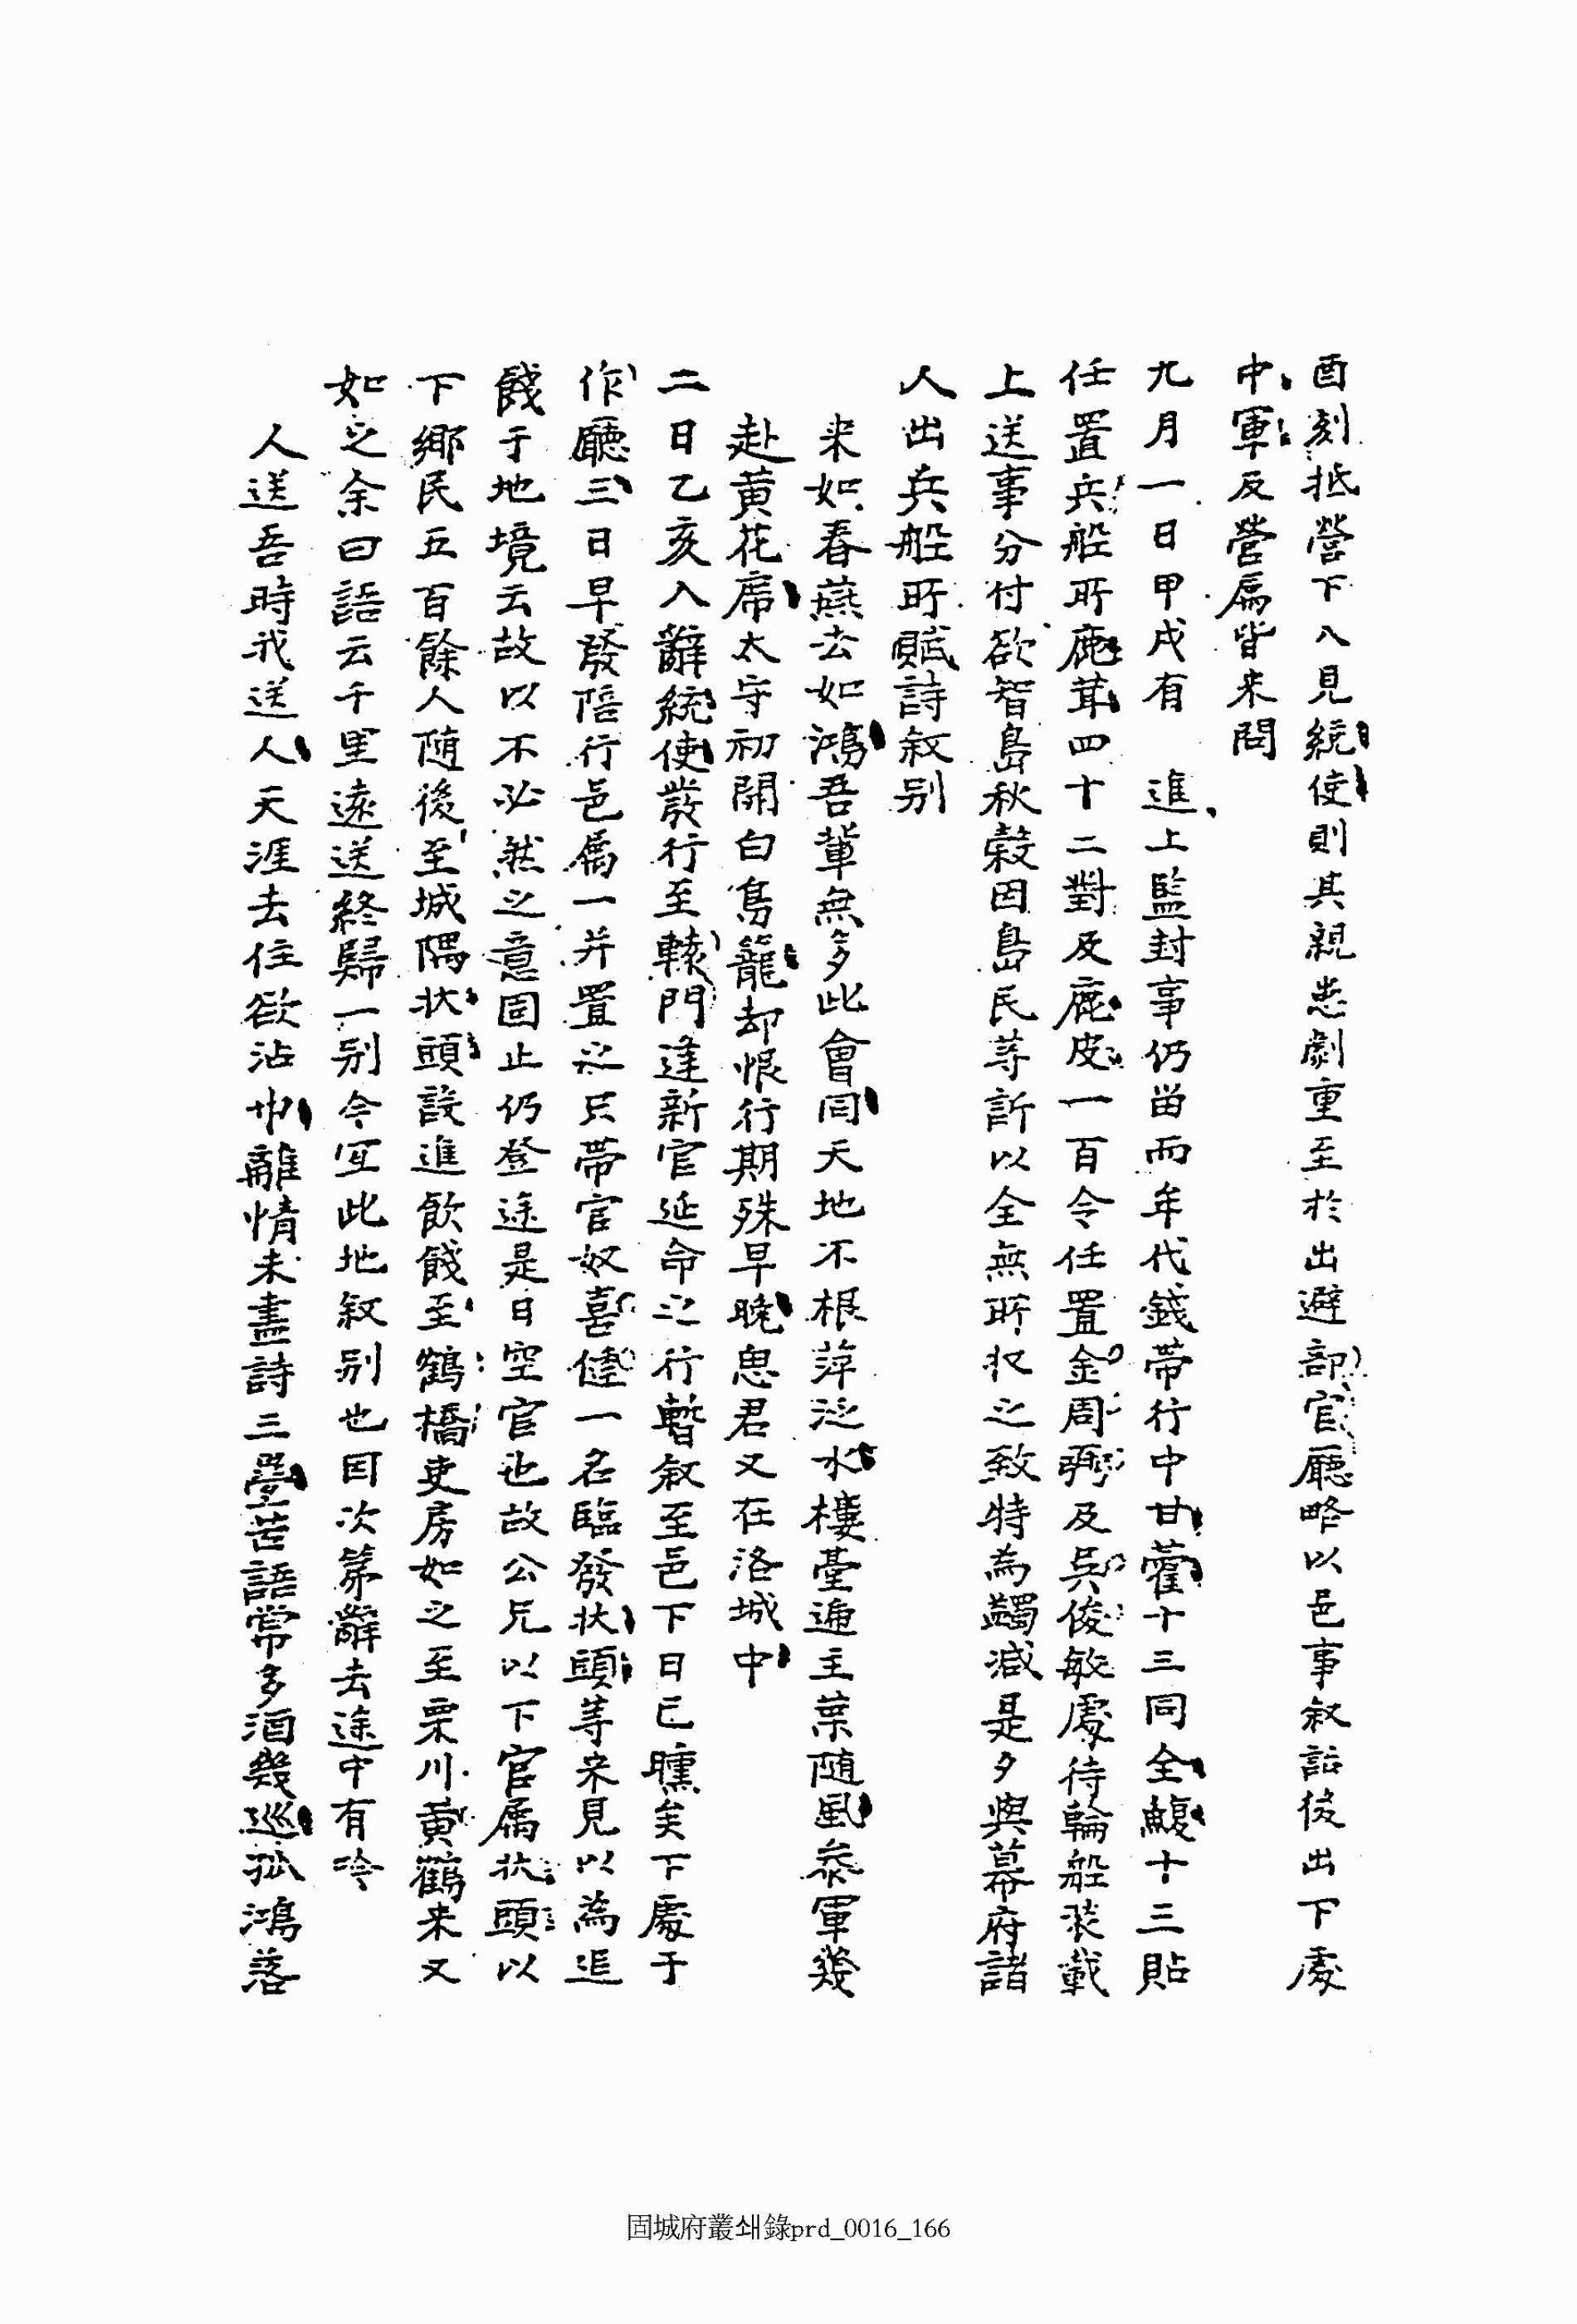 酉刻抵營下入見統使則其親患劇重至於出避部官廳略以邑事叙話後出下處
中軍及營屬皆来問
九月一日甲戌有　進上監封事仍留而牟代錢帶行中甘藿十三同全鰒十三貼
任置兵船所鹿茸四十二對及鹿皮一百令任置金周弼及吳俊敏處待輪船装載
上送事分付欲智島秋穀因島民等訴以全無所收之致特為蠲减是夕與幕府諸
人出兵船所賦詩叙别
来如春燕去如鴻吾輩無多此會同天地不根萍泛水樓臺遍主葉随風叅軍幾
赴黄花席太守初開白鳥籠却恨行期殊早晚思君又在洛城中
二日乙亥入辭統使發行至轅門逢新官延命之行暫叙至邑下日已曛矣下處于
作廳三日早發陪行邑屬一并置之只帶官奴喜僆一名臨發状頭等来見以為追
餞于地境云故以不必然之意固止仍登途是日空官也故公兄以下官屬状頭以
下鄉民五百餘人随後至城隅状頭設進飲餞至鶴橋吏房如之至栗川黄鶴来又
如之余曰語云千里遠送終歸一别今宜此地叙别也因次第辭去途中有吟
人送吾時我送人天涯去住欲沾巾離情未盡詩三疊苦語常多酒幾巡孤鴻落
固城府叢쇄錄prd_0016_166